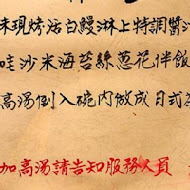 味現烤活白鰻淋上特調醬汁
哇沙米海苔絲蔥花伴飯
高湯倒入碗內做成日式
加高湯請告知服務人員